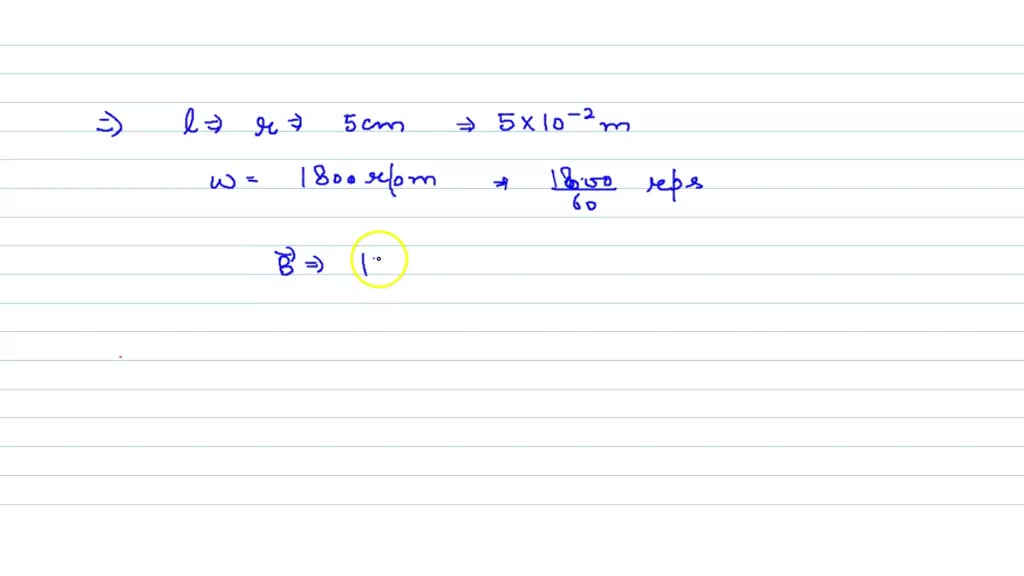 ⇒ l ⇒ r ⇒ 5cm ⇒ 5 × 10⁻² m
ω = 1800 rpm → 1800/60 rps
B⃗ ⇒ 1